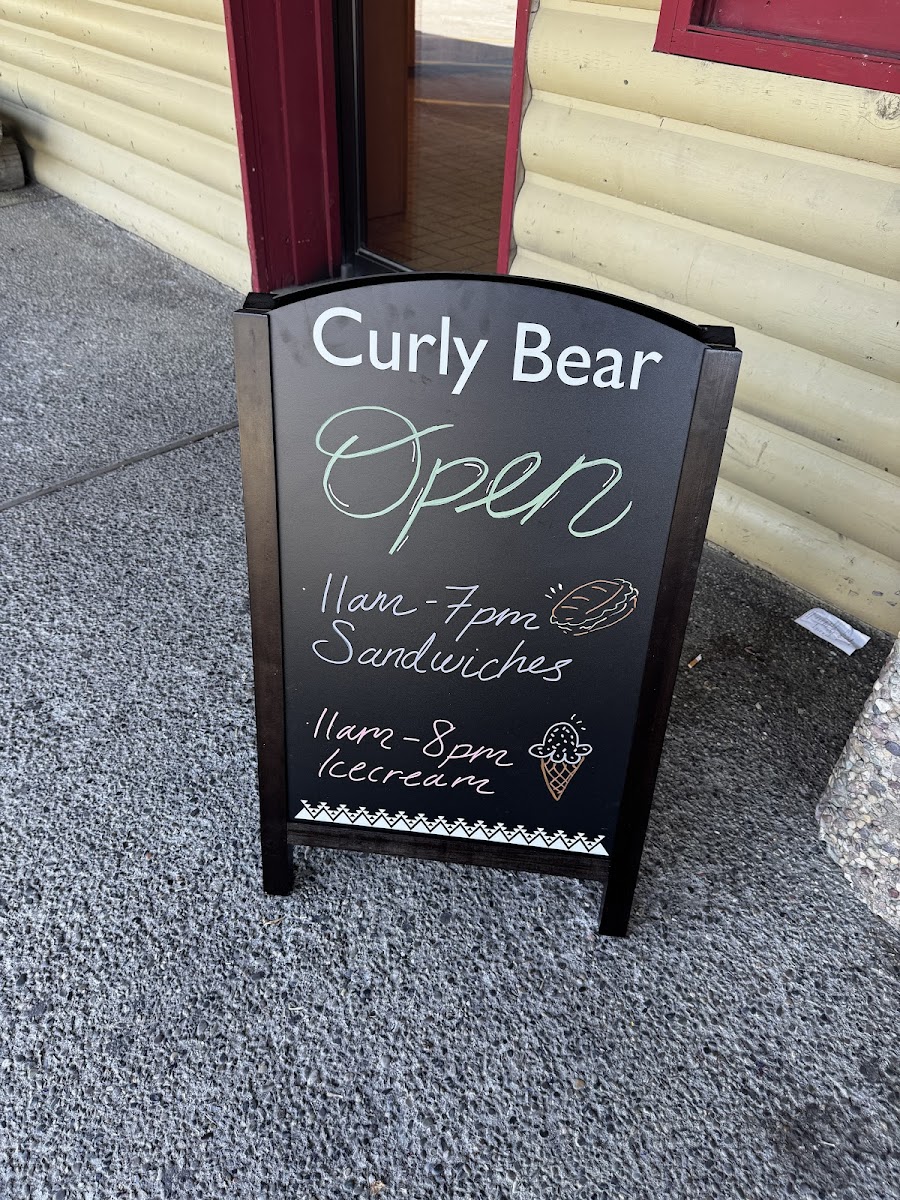 Curly Bear
Open
11am-7pm
Sandwiches
11am-8pm
Icecream